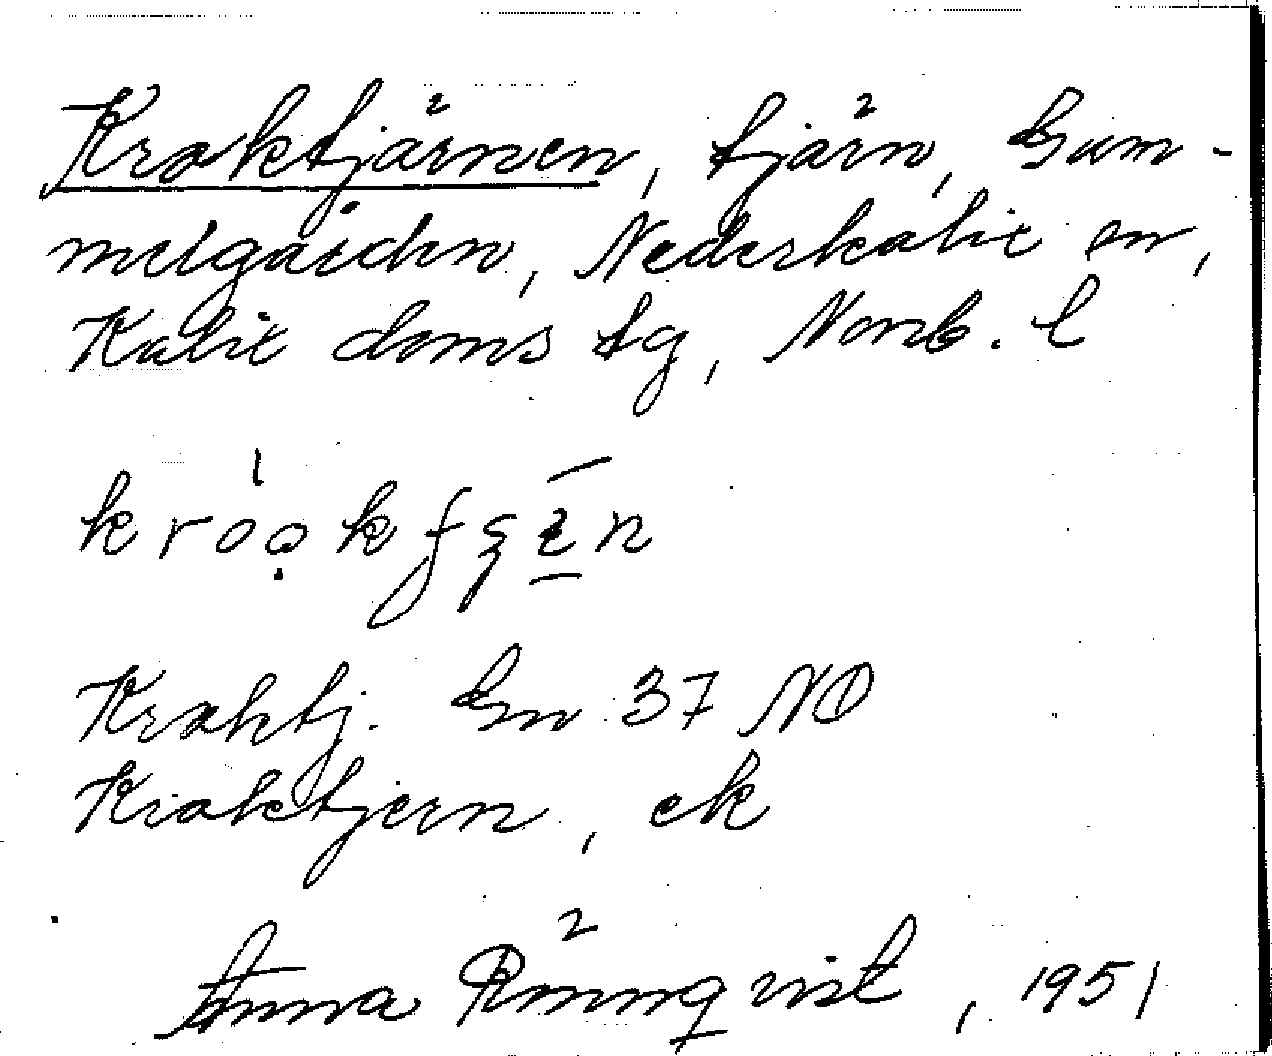 Kraktjärnen, tjärn, Gum-
melgården, Nederkalix sn,
Kalix doms tg, Norrb. l
Kraktj. Gn 37 NO
Kraktjern, ek
Anna Rönnqvist, 1951